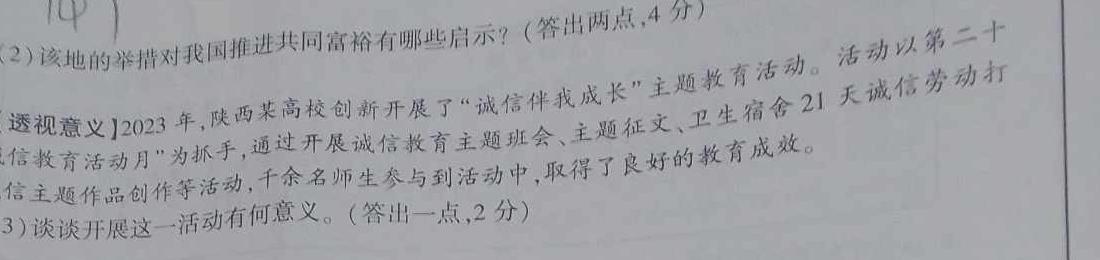 (2)该地的举措对我国推进共同富裕有哪些启示?(答出两点,4 分)
【透视意义】2023 年,陕西某高校创新开展了“诚信伴我成长”主题教育活动。活动以第二十
信教育活动月”为抓手,通过开展诚信教育主题班会、主题征文、卫生宿舍 21 天诚信劳动打
信主题作品创作等活动,千余名师生参与到活动中,取得了良好的教育成效。
3)谈谈开展这一活动有何意义。(答出一点,2 分)